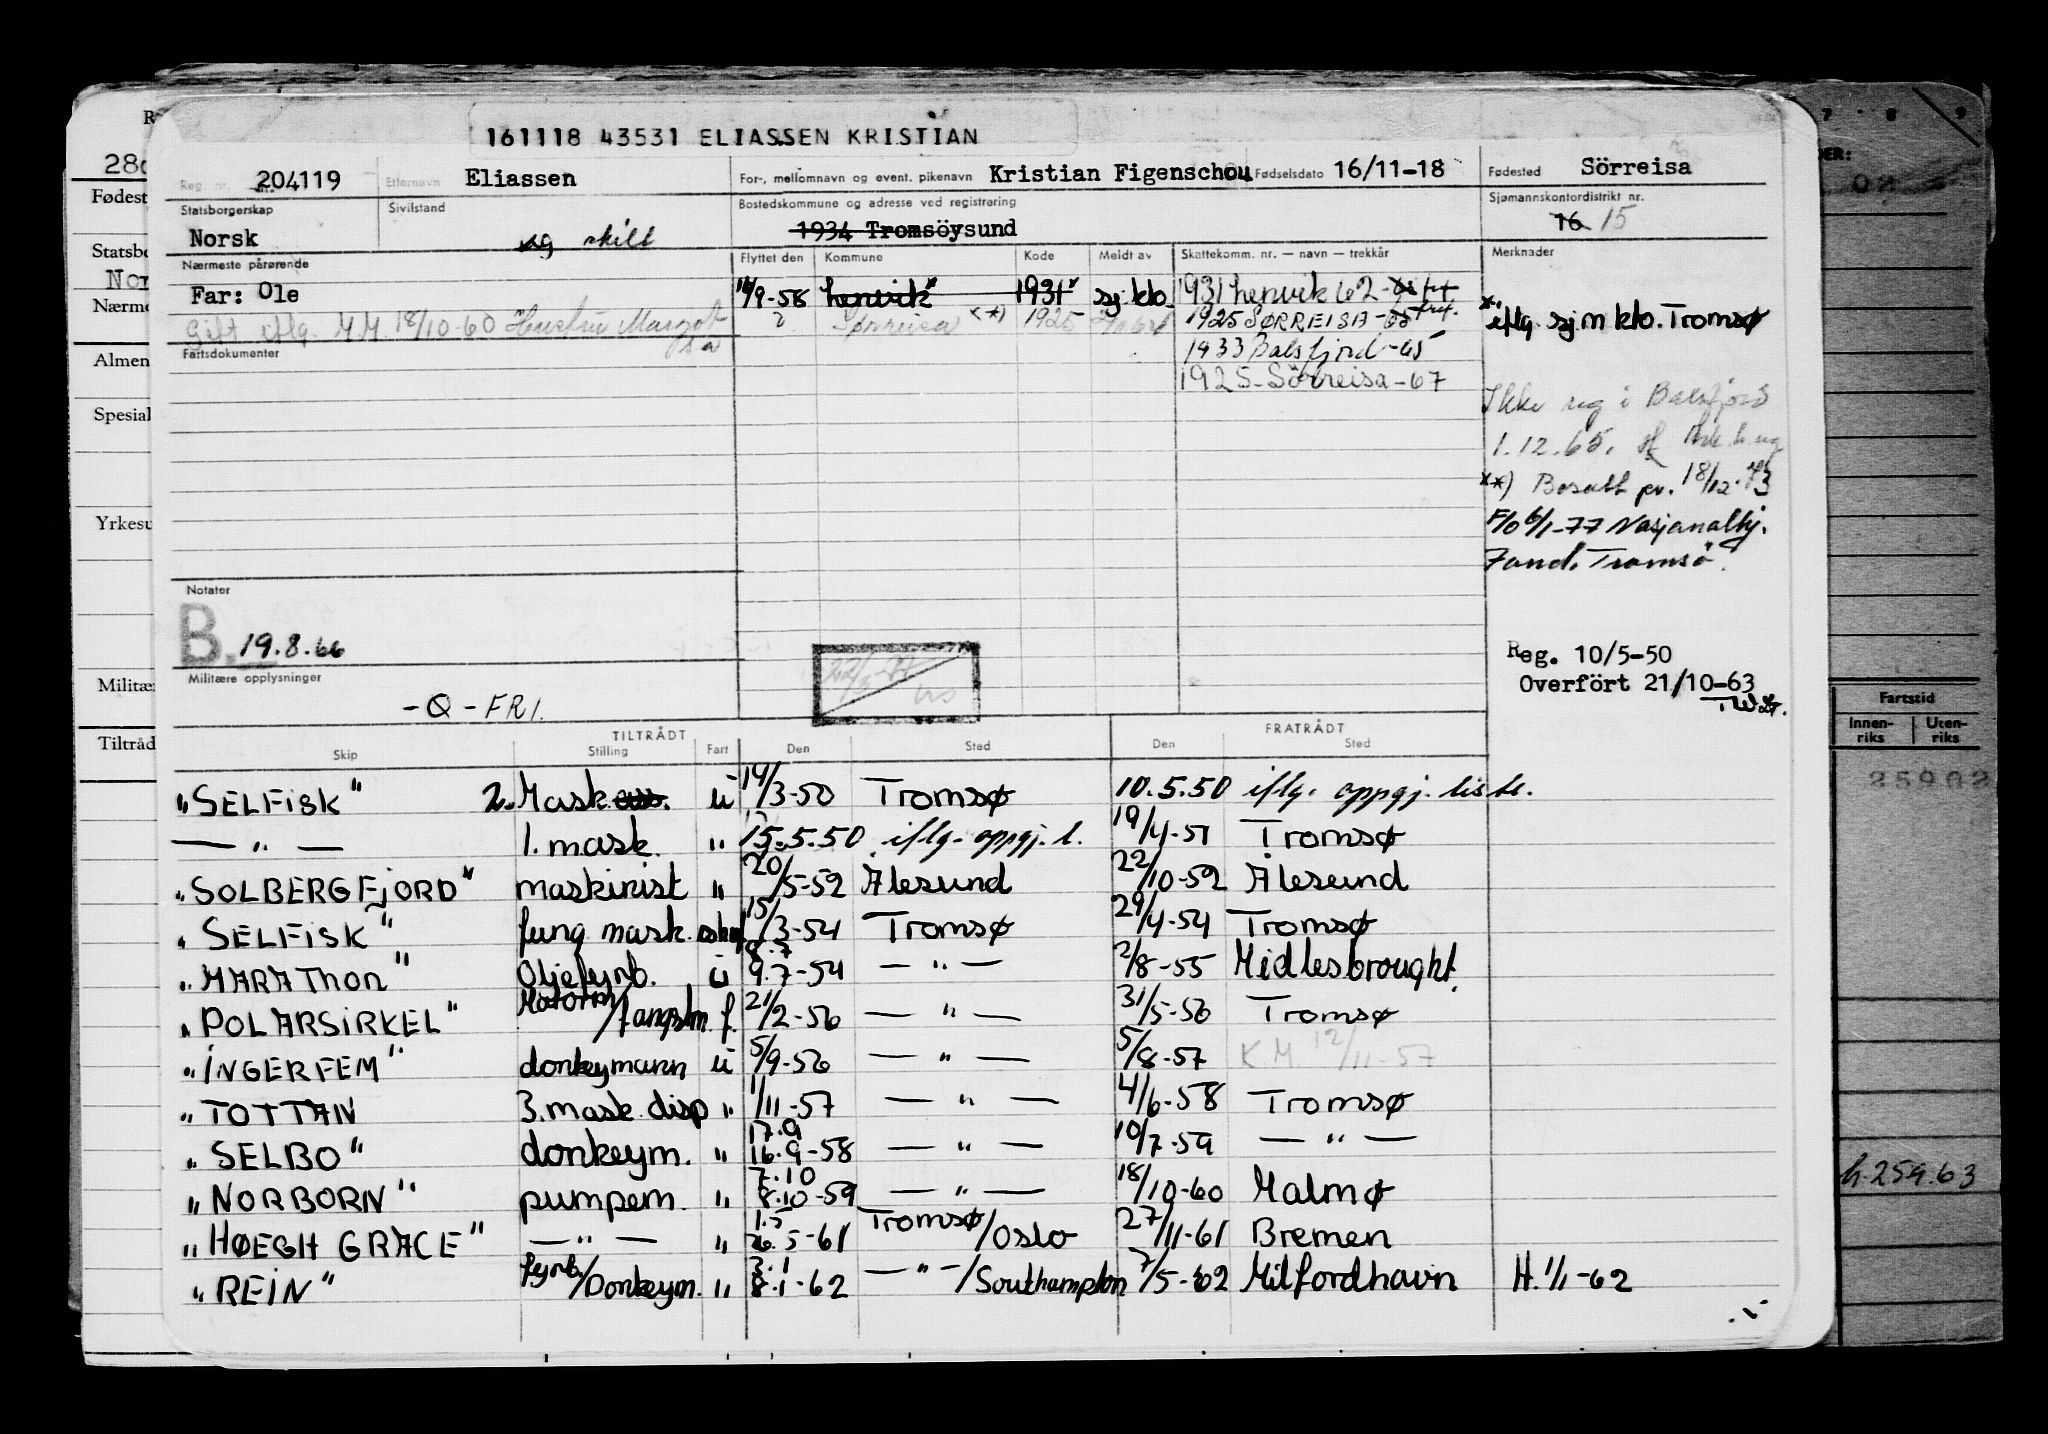 161118 43531 ELIASSEN KRISTIAN
Reg. nr. 204119 Etternavn Eliassen For-, mellomnavn og event. pikenavn Kristian Figenschou Fødselsdato 16/11-18 Fødested Sörreisa
Statsborgerskap Sivilstand Bostedskommune og adresse ved registrering Sjømannskontordistrikt nr.
Norsk ug skilt 1934 Tromsöysund 16 15
Nærmeste pårørende Flyttet den Kommune Kode Meldt av Skattekomm. nr. — navn — trekkår Merknader
Far: Ole 16/9-58 Lenvik* 1931* sj.kto. 1931 Lenvik 62-
Gift iflg. M.M. 18/10-60 Hustru Margot 2 Sørreisa **) 1925 1925 SØRREISA-65 frf. * iflg. sjm kto. Tromsø
Fartsdokumenter 1933 Balsfjord-65
1925-Sörreisa-67
Ikke reg i Balsfjord
1.12.65.
**) Bosatt pr. 18/12-73
F/O 6/1-77 Nasjonalhj.
Fond. Tromsö
Notater
B. 19.8.66
Reg. 10/5-50
Militære opplysninger Overfört 21/10-63
-Q-FRI.
TILTRÅDT FRATRÅDT
Skip Stilling Fart Den Sted Den Sted
"SELFISK" 2. Mask ass. ü 14/3-50 Tromsø 10.5.50 iflg. oppgj. liste.
— " — 1. mask. " 15.5.50 iflg. oppgj. l. 19/4-51 Tromsø
"SOLBERGFJORD" maskinist " 20/5-52 Ålesund 22/10-52 Ålesund
"SELFISK" fung mask. 15/3-54 Tromsø 29/4-54 Tromsø
"MARATHON" Oljefyrb. ü 8.7 9.7-54 — " — 2/8-55 Midlesbrought.
"POLARSIRKEL" Motorm/fangstm f. 21/2-56 — " — 31/5-56 Tromsø
"INGERFEM" donkeymann ü 5/9-56 — " — 5/8-57 K.M 12/11-57
"TOTTAN 3. mask. disp " 1/11-57 — " — 4/6-58 Tromsø
"SELBO" donkeym. " 17.9 16.9-58 — " — 10/7-59 — " —
"NORBORN" pumpem. " 7.10 8.10-59 — " — 18/10-60 Malmø
"HØEGH GRACE" — " — " 1.5 26.5-61 Tromsø/Oslo 27/11-61 Bremen
"REIN" fyrb./Donkeym. " 3.1 8.1-62 — " —/Southampton 7/5-62 Milfordhavn H. 1/1-62
Fødest
Statsbo
Nor
Nærme
Almen
Spesial
Yrkesu
Militær
Tiltråd
7 8 9
Fartstid
Innen-riks Uten-riks
25902
h.259.63